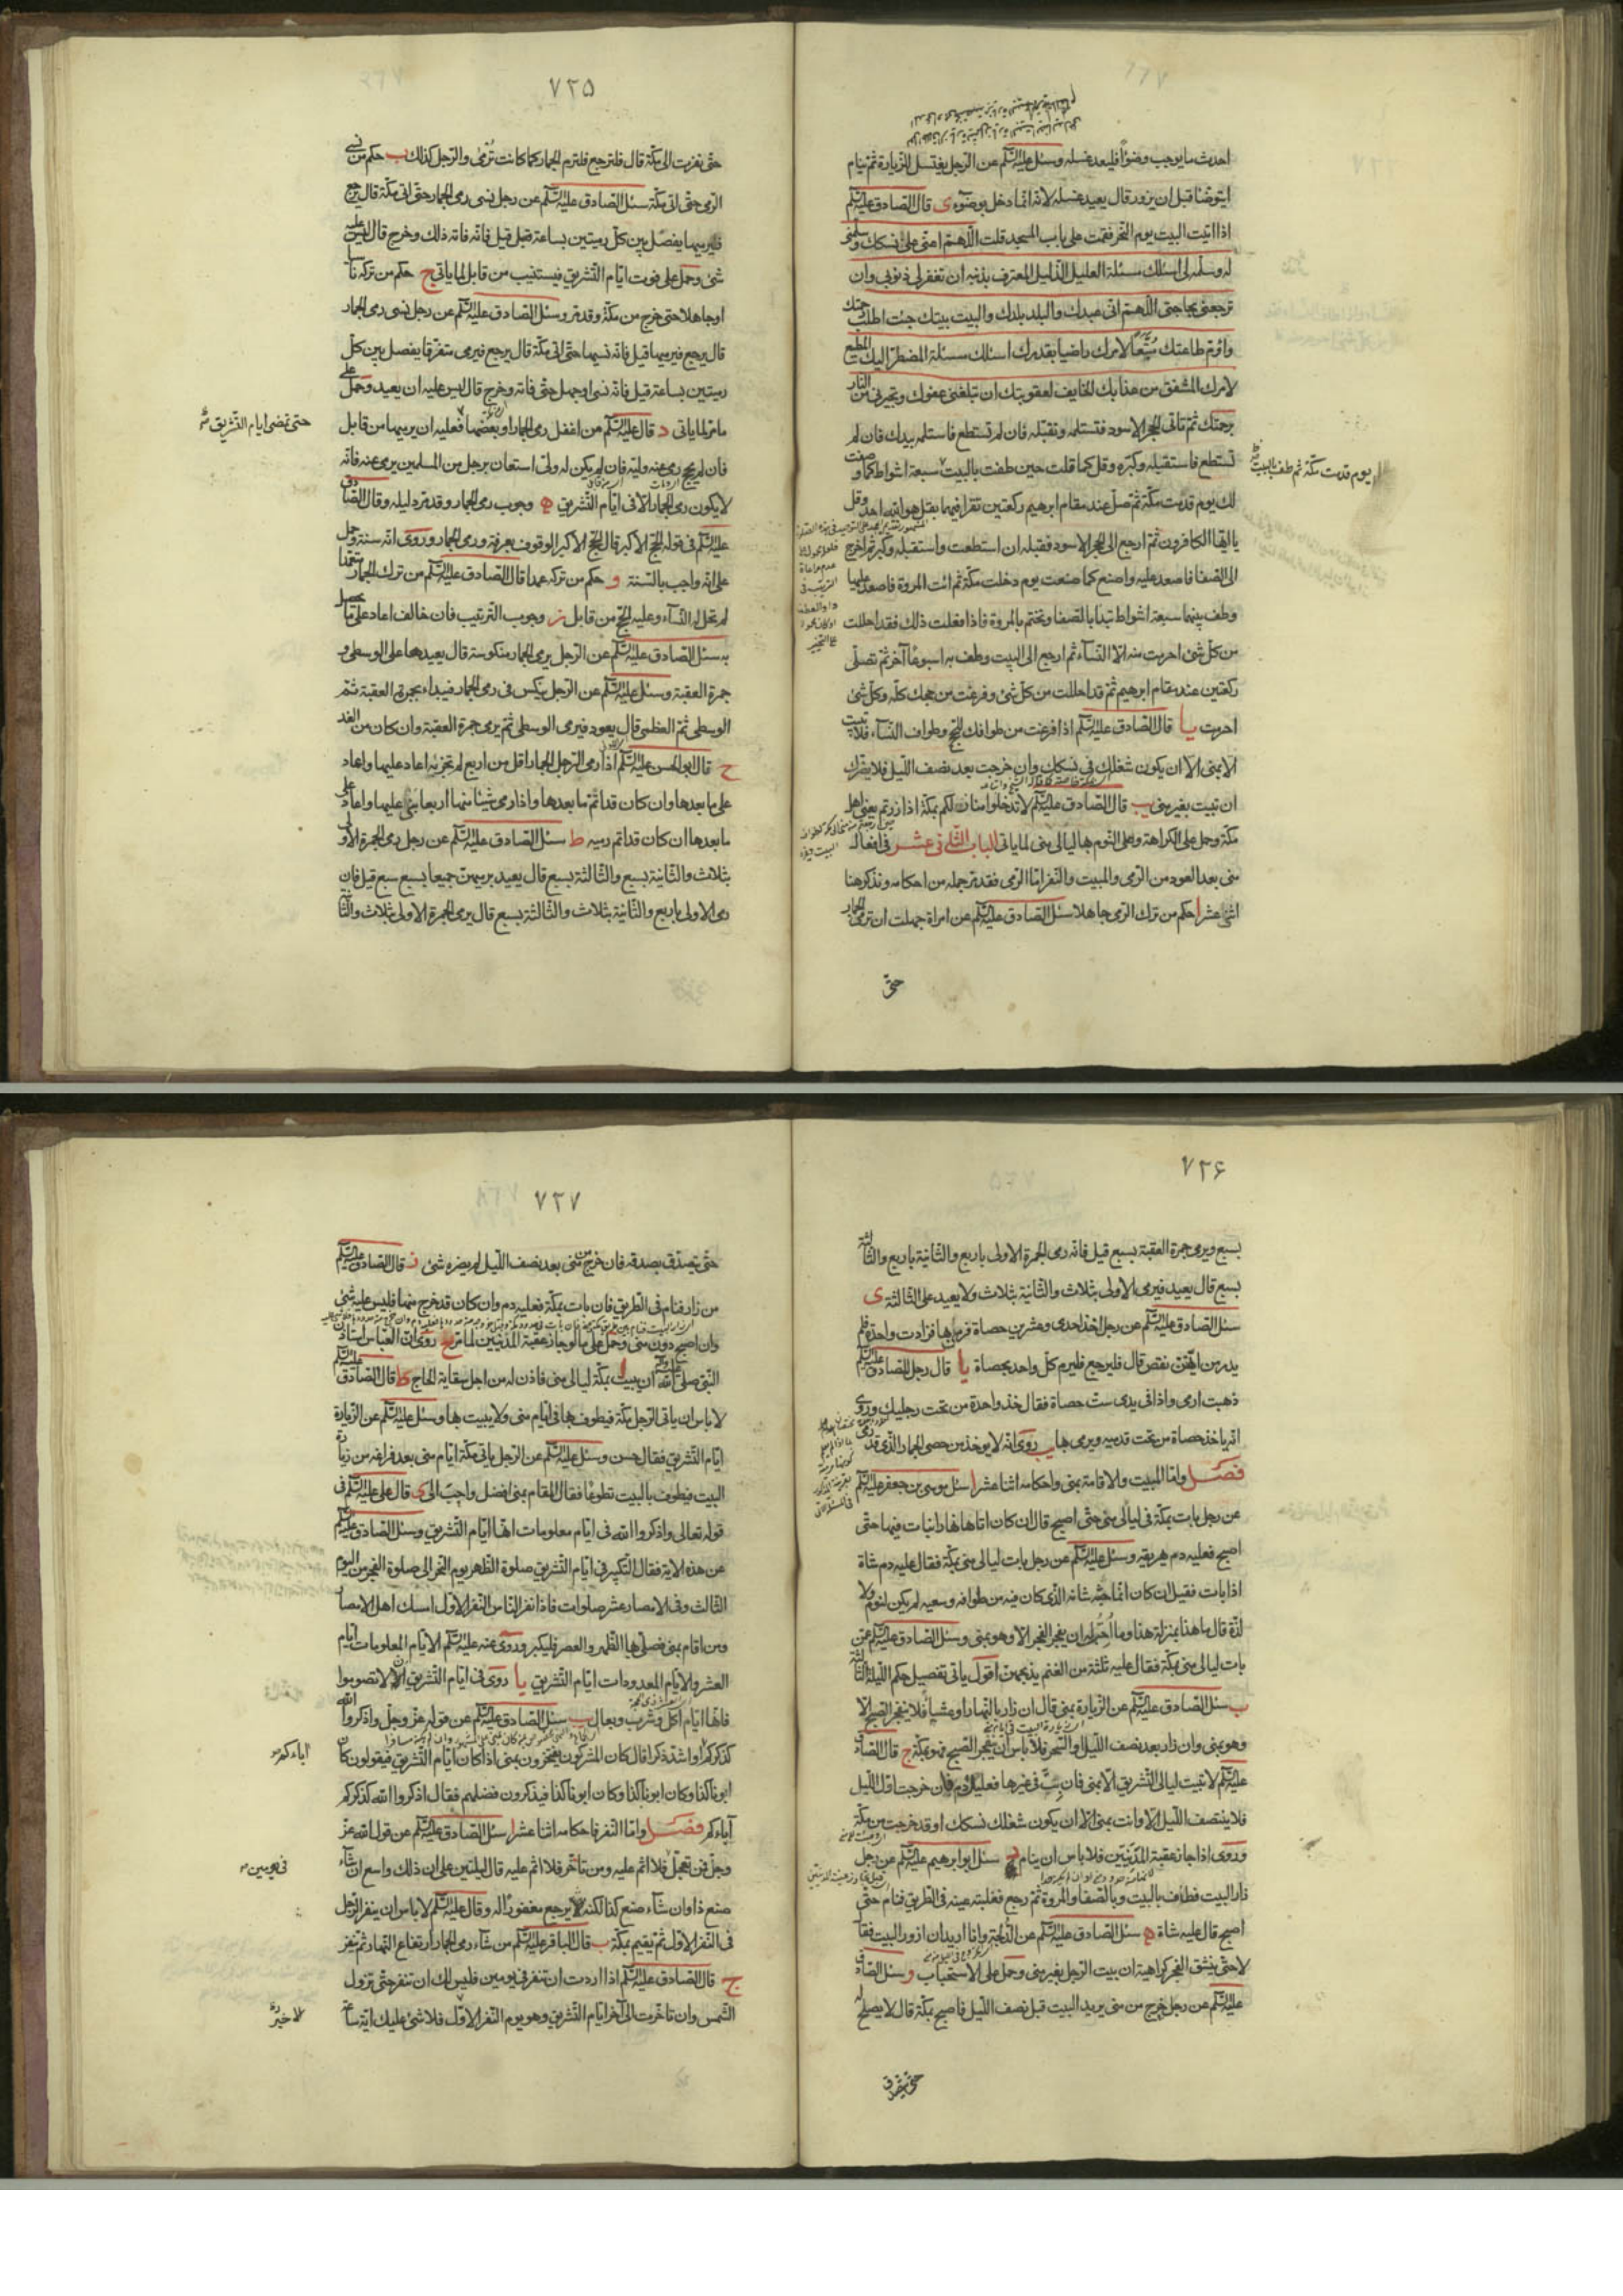 احدث ما يوجب وضوءاً فليعد غسله وسئل عليه السّلم عن الرّجل يغتسل للزّيارة ثمّ ينام
ايتوضّا قبل ان يزور قال يعيد غسله لانّه انّما دخل بوضوء ى قال الصّادق عليه السّلم
اذا اتيت البيت يوم النّحر فقمت على باب المسجد قلت اللّهمّ اعنّى على نسكك وسلّمنى
له وسلّمه لى اسئلك مسئلة العليل الذّليل المعترف بذنبه ان تغفر لى ذنوبى وان
ترجعنى بحاجتى اللّهمّ انّى عبدك والبلد بلدك والبيت بيتك جئت اطلب رحمتك
واؤمّ طاعتك متّبعاً لامرك راضيا بقدرك اسئلك مسئلة المضطرّ اليك المطيع
لامرك المشفق من عذابك الخايف لعقوبتك ان تبلّغنى عفوك وتجيرنى من النار
برحمتك ثمّ تاتى الحجر الاسود فتستلمه وتقبّله فان لم تستطع فاستلمه بيدك فان لم
تستطع فاستقبله وكبّره وقل كما قلت حين طفت بالبيت سبعة اشواط كما وصفت
يوم قدمت مكّة ثم طف بالبيت
لك يوم قدمت مكّة ثمّ صلّ عند مقام ابرهيم ركعتين تقرا فيهما بقل هو الله احد وقل
يا ايّها الكافرون ثمّ ارجع الى الحجر الاسود فقبّله ان استطعت واستقبله وكبّر ثم اخرج
الى الصّفا فاصعد عليه واصنع كما صنعت يوم دخلت مكّة ثم ائت المروة فاصعد عليها
وطف بينهما سبعة اشواط تبدا بالصّفا وتختم بالمروة فاذا فعلت ذلك فقد احللت
من كلّ شئ احرمت منه الا النّسآء ثم ارجع الى البيت وطف به اسبوعاً آخر ثم تصلّى
ركعتين عند مقام ابرهيم ثمّ قد احللت من كلّ شئ وفرغت من حجّك كلّه وكلّ شئ
احرمت يا قال الصّادق عليه السّلم اذا فرغت من طوافك للحجّ وطواف النّسآء فلا تبيت
الا بمنى الا ان يكون شغلك فى نسكك وان خرجت بعد نصف اللّيل فلا يضرّك
ان تبيت بغير منى يب قال الصّادق عليه السّلم لا تدخلوا منازلكم بمكّة اذا زرتم يعنى اهل
مكّة وحمل على الكراهة وعلى النّوم بها ليالى منى لما ياتى الباب الثّانى عشر فى افعال
منى بعد العود من الرّمى والمبيت والنّفر امّا الرّمى فقد مرّ جملة من احكامه ونذكر هنا
اثنى عشر ا حكم من ترك الرّمى جاهلا سئل الصّادق عليه السّلم عن امراة جهلت ان ترمى الجمار
حتّى
٧٢٥
حتّى نفرت الى مكّة قال فلترجع فلترم الجمار كما كانت ترمى والرّجل كذلك ب حكم من نسى
الرّمى حتّى اتى مكّة سئل الصّادق عليه السّلم عن رجل نسى رمى الجمار حتّى اتى مكّة قال يرجع
فيرميها يفصل بين كلّ رميتين بساعة قيل فانّه فاته ذلك وخرج قال ليس عليه
شئ وحمل على فوت ايّام التّشريق فيستنيب من قابل لما ياتى ج حكم من تركه ناسيا
او جاهلا حتى خرج من مكّة وقد مرّ وسئل الصّادق عليه السّلم عن رجل نسى رمى الجمار
قال يرجع فيرميها قيل فانّه نسيها حتّى اتى مكّة قال يرجع فيرمى متفرّقا يفصل بين كلّ
رميتين بساعة قيل فانّه نسى او جهل حتّى فاته وخرج قال ليس عليه ان يعيد وحمل على
ما مرّ لما ياتى د قال عليه السّلم من اغفل رمى الجمار او بعضها فعليه ان يرميها من قابل
حتى تمضى ايام التّشريق
فان لم يحج رمى عنه وليّه فان لم يكن له ولىّ استعان برجل من المسلمين يرمى عنه فانّه
لا يكون رمى الجمار الا فى ايّام التّشريق ه وجوب رمى الجمار وقد مرّ دليله وقال الصّادق
عليه السّلم فى قوله الحجّ الاكبر قال الحجّ الاكبر الوقوف بعرفة ورمى الجمار وروى انّه سنّة وحمل
على انّه واجب بالسّنة و حكم من تركه عمدا قال الصّادق عليه السّلم من ترك الجمار متعمّدا
لم تحلّ له النّسآء وعليه الحجّ من قابل ز وجوب الترتيب فان خالف اعاد على ما يحصل
به سئل الصّادق عليه السّلم عن الرّجل يرمى الجمار منكوسة قال يعيدها على الوسطى و
جمرة العقبة وسئل عليه السّلم عن الرّجل ينكس فى رمى الجمار فيبدا بجمرة العقبة ثمّ
الوسطى ثمّ العظمى قال يعود فيرمى الوسطى ثمّ يرمى جمرة العقبة وان كان من الغد
ح قال ابو الحسن عليه السّلم اذا رمى الرّجل الجمار اقل من اربع لم تجزئه اعاد عليها واعاد
على ما بعدها وان كان قد اتمّ ما بعدها واذا رمى شيئا منها اربعا بنى عليها واعاد على
ما بعدها ان كان قد اتم رميه ط سئل الصّادق عليه السّلم عن رجل رمى الجمرة الاولى
بثلاث والثّانية بسبع والثّالثة بسبع قال يعيد يرميهنّ جميعا بسبع سبع قيل فان
رمى الاولى باربع والثّانية بثلاث والثّالثة بسبع قال يرمى الجمرة الاولى بثلاث والثّا
٧٢۶
بسبع ويرمى جمرة العقبة بسبع قيل فانّه رمى الجمرة الاولى باربع والثّانية باربع والثّالثة
بسبع قال يعيد فيرمى الاولى بثلاث والثّانية بثلاث ولا يعيد على الثّالثة ى
سئل الصّادق عليه السّلم عن رجل اخذ احدى وعشرين حصاة فرمى بها فزادت واحدة فلم
يدر من ايّتهنّ نقص قال فليرجع فليرم كلّ واحد بحصاة يا قال رجل للصّادق عليه السّلم
ذهبت ارمى واذا فى يدى ستّ حصاة فقال خذ واحدة من تحت رجليك وروى
انّه ياخذ حصاة من تحت قدميه ويرمى بها يب روى انّه لا يوخذ من حصى الجمار الّذى قد رمى
فصل وامّا المبيت والاقامة بمنى واحكامه اثنا عشر ا سئل موسى بن جعفر عليه السّلم
عن رجل بات بمكّة فى ليالى منى حتّى اصبح قال ان كان اتاها نهارا فبات فيها حتّى
اصبح فعليه دم يهريقه وسئل عليه السّلم عن رجل بات ليالى منى بمكّة فقال عليه دم شاة
اذا بات فقيل ان كان انّما حبسه شانه الّذى كان فيه من طوافه وسعيه لم يكن لنوم ولا
لذّة قال ما هذا بمنزلة هذا وما احبّ له ان ينفجر الفجر الا وهو بمنى وسئل الصّادق عليه السّلم عن
بات ليالى منى بمكّة فقال عليه ثلثة من الغنم يذبحهنّ اقول ياتى تفصيل حكم اللّيلة الثّالثة
ب سئل الصّادق عليه السّلم عن الزّيارة بمنى قال ان زار بالنّهار او عشياً فلا ينفجر الصبح الّا
وهو بمنى وان زار بعد نصف اللّيل والسّحر فلا باس ان ينفجر الصبح وهو بمكّة ج قال الصّادق
عليه السّلم لا تبيت ليالى التّشريق الّا بمنى فان بتّ فى غيرها فعليك دم فان خرجت اوّل اللّيل
فلا ينتصف اللّيل الا وانت بمنى الا ان يكون شغلك نسكك او قد خرجت من مكّة
وروى اذا جاز عقبة المدنيّين فلا باس ان ينام د سئل ابو ابرهيم عليه السّلم عن رجل
زار البيت فطاف بالبيت وبالصّفا والمروة ثمّ رجع فغلبته عينه فى الطّريق فنام حتّى
اصبح قال عليه شاة ه سئل الصّادق عليه السّلم عن الدّلجة وانا اريد ان ازور البيت فقال
لا حتّى ينشق الفجر كراهية ان يبيت الرّجل بغير منى وحمل على الاستحباب و وسئل الصّادق
عليه السّلم عن رجل خرج من منى يريد البيت قبل نصف اللّيل فاصبح بمكّة قال لا يصلح له
حتّى يتصدّق
٧٢٧
حتّى يتصدّق بصدقة فان خرج من منى بعد نصف اللّيل لم يضرّه شئ ز قال الصّادق عليه السّلم
من زار فنام فى الطّريق فان بات بمكّة فعليه دم وان كان قد خرج منها فليس عليه شئ
وان اصبح دون منى وحمل على ما لو جاز عقبة المدنيّين لما مرّ ح روى انّ العبّاس استاذن
النّبى صلّى الله عليه وآله ان يبيت بمكّة ليالى منى فاذن له من اجل سقاية الحاج ط قال الصّادق عليه السّلم
لا باس ان ياتى الرّجل مكّة فيطوف بها فى ايّام منى ولا يبيت بها وسئل عليه السّلم عن الزّيارة
ايّام التّشريق فقال حسن وسئل عليه السّلم عن الرّجل ياتى مكّة ايّام منى بعد فراغه من زيارة
البيت فيطوف بالبيت تطوّعاً فقال المقام بمنى افضل واحبّ الىّ ى قال على عليه السّلم فى
قوله تعالى واذكروا الله فى ايّام معلومات انّها ايّام التّشريق وسئل الصّادق عليه السّلم
عن هذه الاية فقال التّكبير فى ايّام التّشريق صلوة الظّهر يوم النّحر الى صلوة الفجر من اليوم
الثّالث وفى الامصار عشر صلوات فاذا نفر النّاس النّفر الاوّل امسك اهل الامصار
ومن اقام بمنى فصلّى بها الظّهر والعصر فليكبّر وروى عنه عليه السّلم الايّام المعلومات ايّام
العشر والايّام المعدودات ايّام التّشريق يا روى فى ايّام التّشريق الا لا تصوموا
فانّها ايّام اكل وشرب وبعال يب سئل الصّادق عليه السّلم عن قوله عزّ وجلّ واذكروا الله
كذكركم او اشدّ ذكرا قال كان المشركون يفتخرون بمنى اذا كان ايّام التّشريق فيقولون كان
اباءكم
ابونا كذا وكان ابونا كذا وكان ابونا كذا فيذكرون فضلهم فقال اذكروا الله كذكركم
آباءكم فصل وامّا النّفر فاحكامه اثنا عشر ا سئل الصّادق عليه السّلم عن قول الله عزّ
وجلّ فمن تعجّل فلا اثم عليه ومن تاخّر فلا اثم عليه قال ليلتين على ان ذلك واسع ان شآء
فى يومين
صنع ذا وان شآء صنع كذا لكنّه يرجع مغفوراً له وقال عليه السّلم لا باس ان ينفر الرّجل
فى النّفر الاوّل ثمّ يقيم بمكّة ب قال الباقر عليه السّلم من شآء رمى الجمار ارتفاع النّهار ثم نفر
ج قال الصّادق عليه السّلم اذا اردت ان تنفر فى يومين فليس لك ان تنفر حتّى تزول
الشّمس وان تاخّرت الى آخر ايّام التّشريق وهو يوم النّفر الاوّل فلا شئ عليك ايّة ساعة